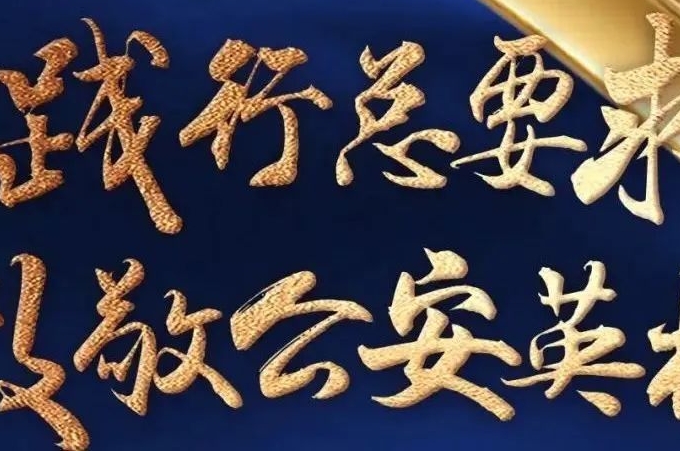 践行总要求
致敬公安英